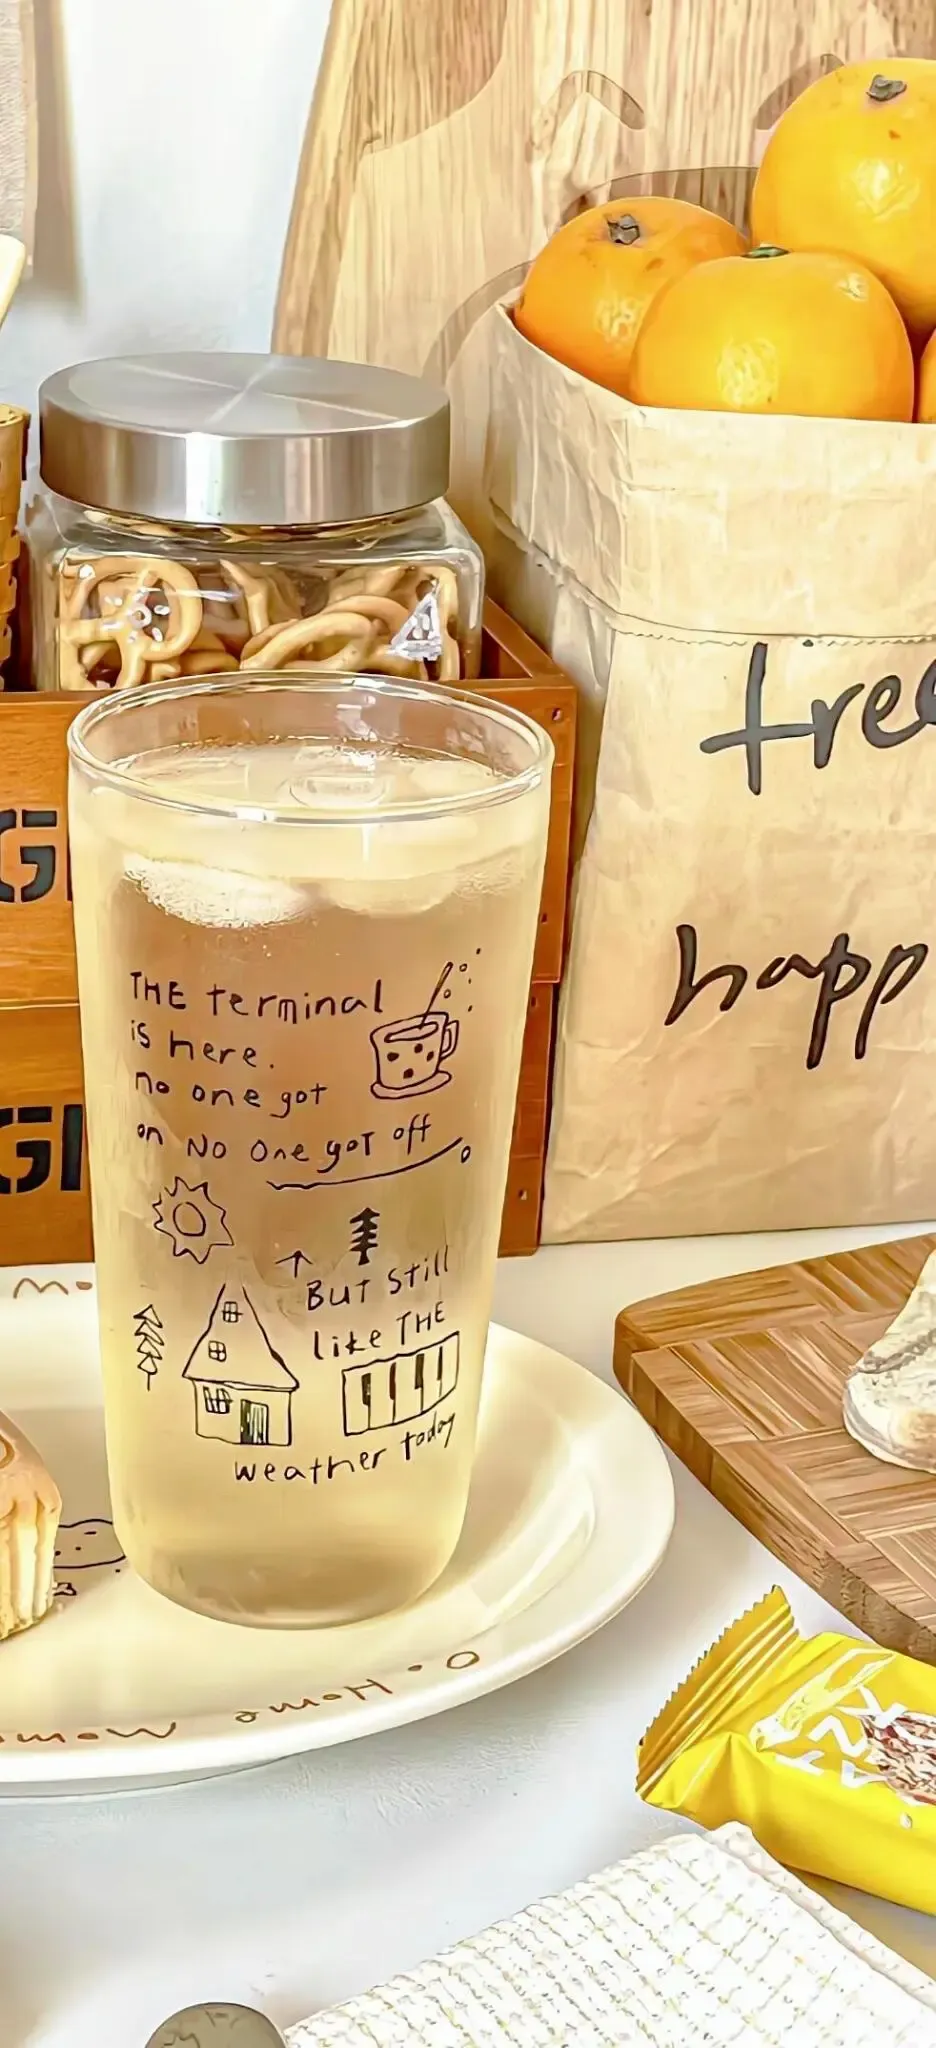 tree
happ
GI
GI
THE terminal
is here.
no one got
on No One got off
But still
like THE
weather today
O • Home
Mom